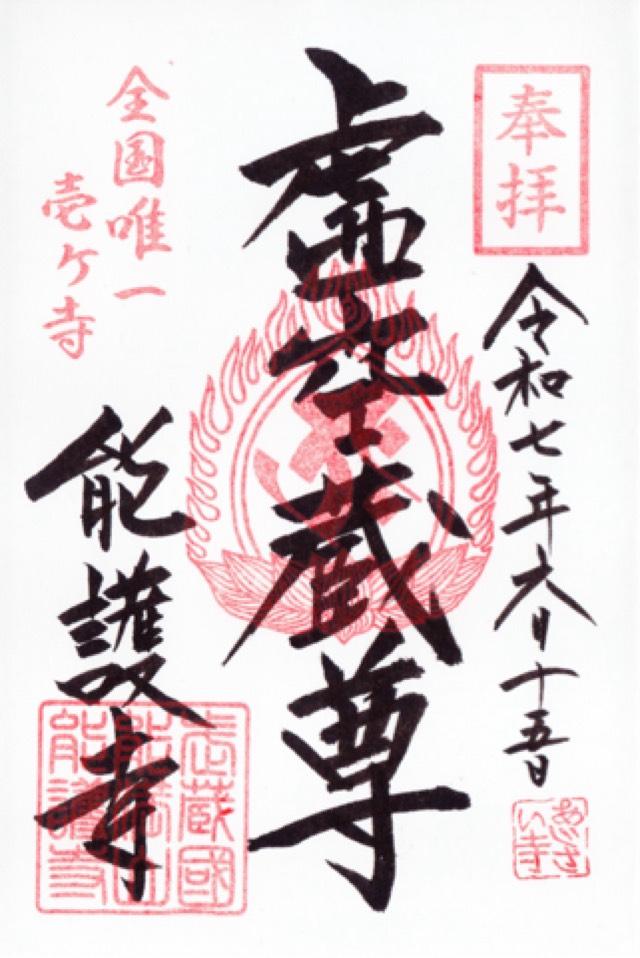 奉拝
令和七年六月十五日
あじさい寺
虚空蔵尊
全国唯一
壱ケ寺
能護寺
武蔵國
能護寺